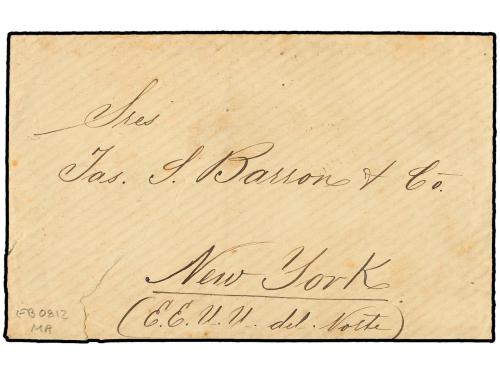 Sres
Jas. S. Barron & Co.
New York
(E.E.U.U. del Norte)
EB0812
MA